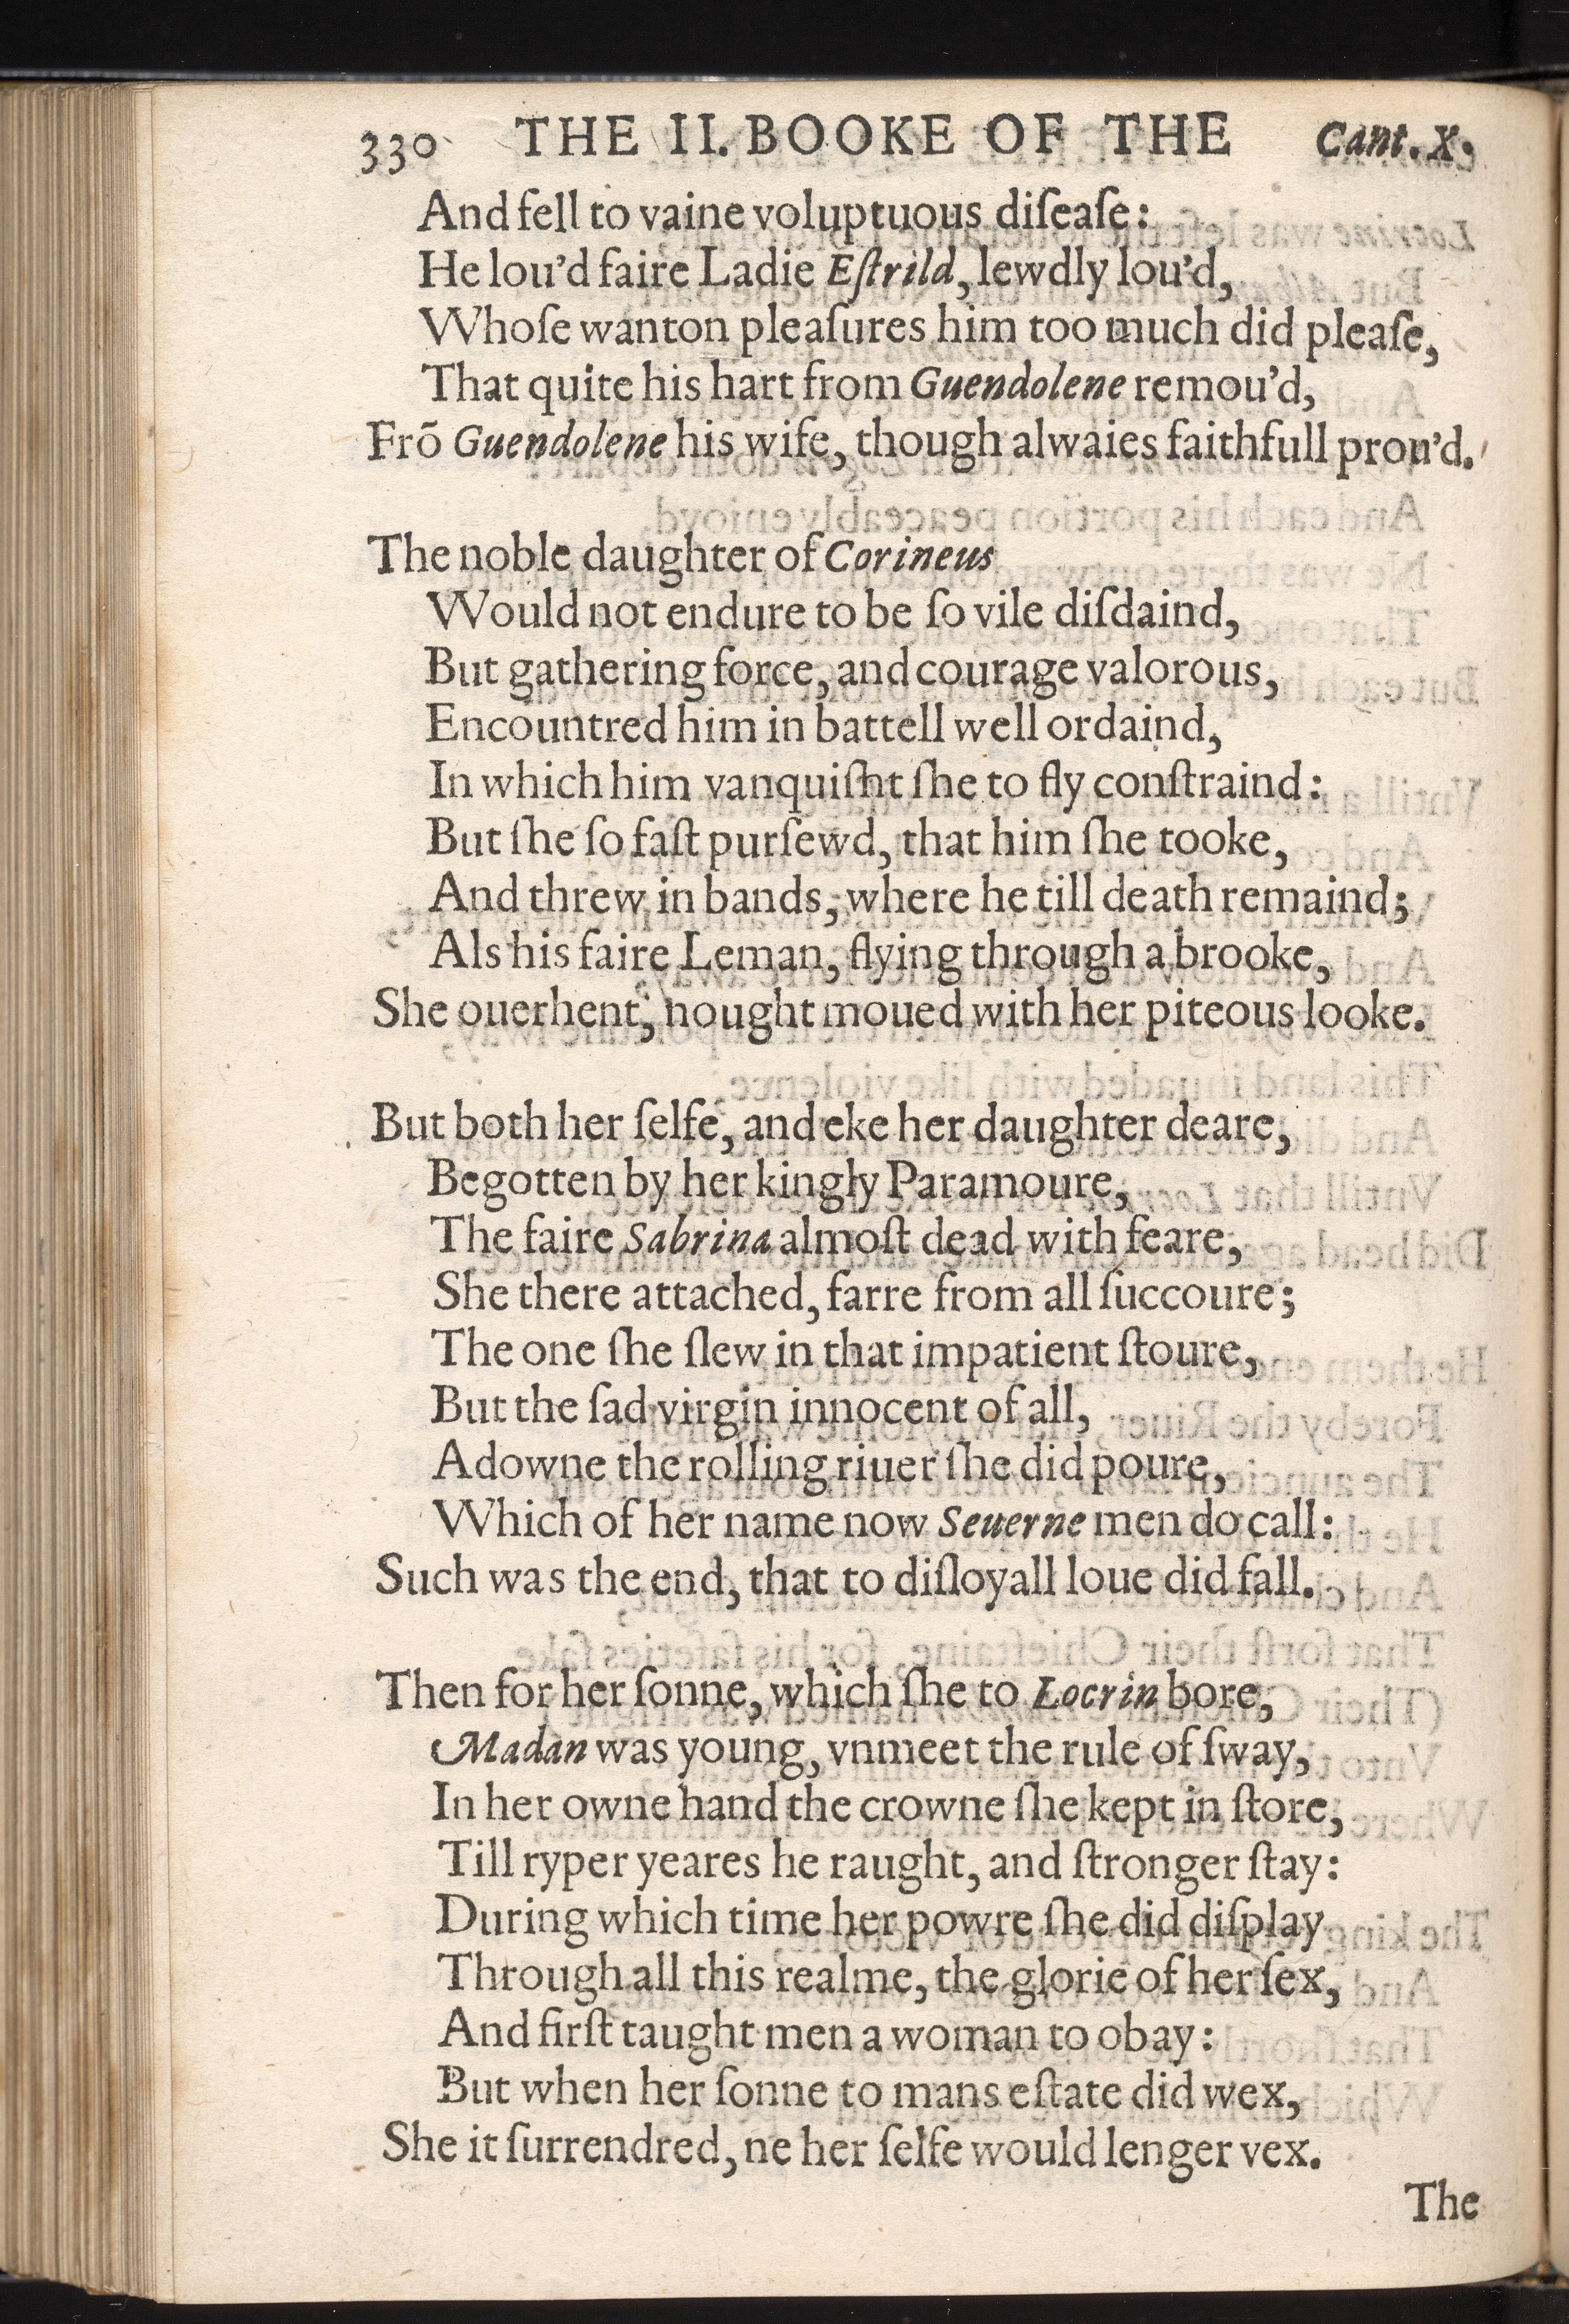 330 THE II. BOOKE OF THE Cant. X.
And fell to vaine voluptuous diſeaſe:
He lou'd faire Ladie Eſtrild, lewdly lou'd,
Whoſe wanton pleaſures him too much did pleaſe,
That quite his hart from Guendolene remou'd,
Frõ Guendolene his wife, though alwaies faithfull prou'd.
The noble daughter of Corineus
Would not endure to be ſo vile diſdaind,
But gathering force, and courage valorous,
Encountred him in battell well ordaind,
In which him vanquiſht ſhe to fly conſtraind:
But ſhe ſo faſt purſewd, that him ſhe tooke,
And threw in bands, where he till death remaind;
Als his faire Leman, flying through a brooke,
She ouerhent, nought moued with her piteous looke.
But both her ſelfe, and eke her daughter deare,
Begotten by her kingly Paramoure,
The faire Sabrina almoſt dead with feare,
She there attached, farre from all ſuccoure;
The one ſhe ſlew in that impatient ſtoure,
But the ſad virgin innocent of all,
Adowne the rolling riuer ſhe did poure,
Which of her name now Seuerne men do call:
Such was the end, that to diſloyall loue did fall.
Then for her ſonne, which ſhe to Locrin bore,
Madan was young, vnmeet the rule of ſway,
In her owne hand the crowne ſhe kept in ſtore,
Till ryper yeares he raught, and ſtronger ſtay:
During which time her powre ſhe did diſplay
Through all this realme, the glorie of her ſex,
And firſt taught men a woman to obay:
But when her ſonne to mans eſtate did wex,
She it ſurrendred, ne her ſelfe would lenger vex.
The